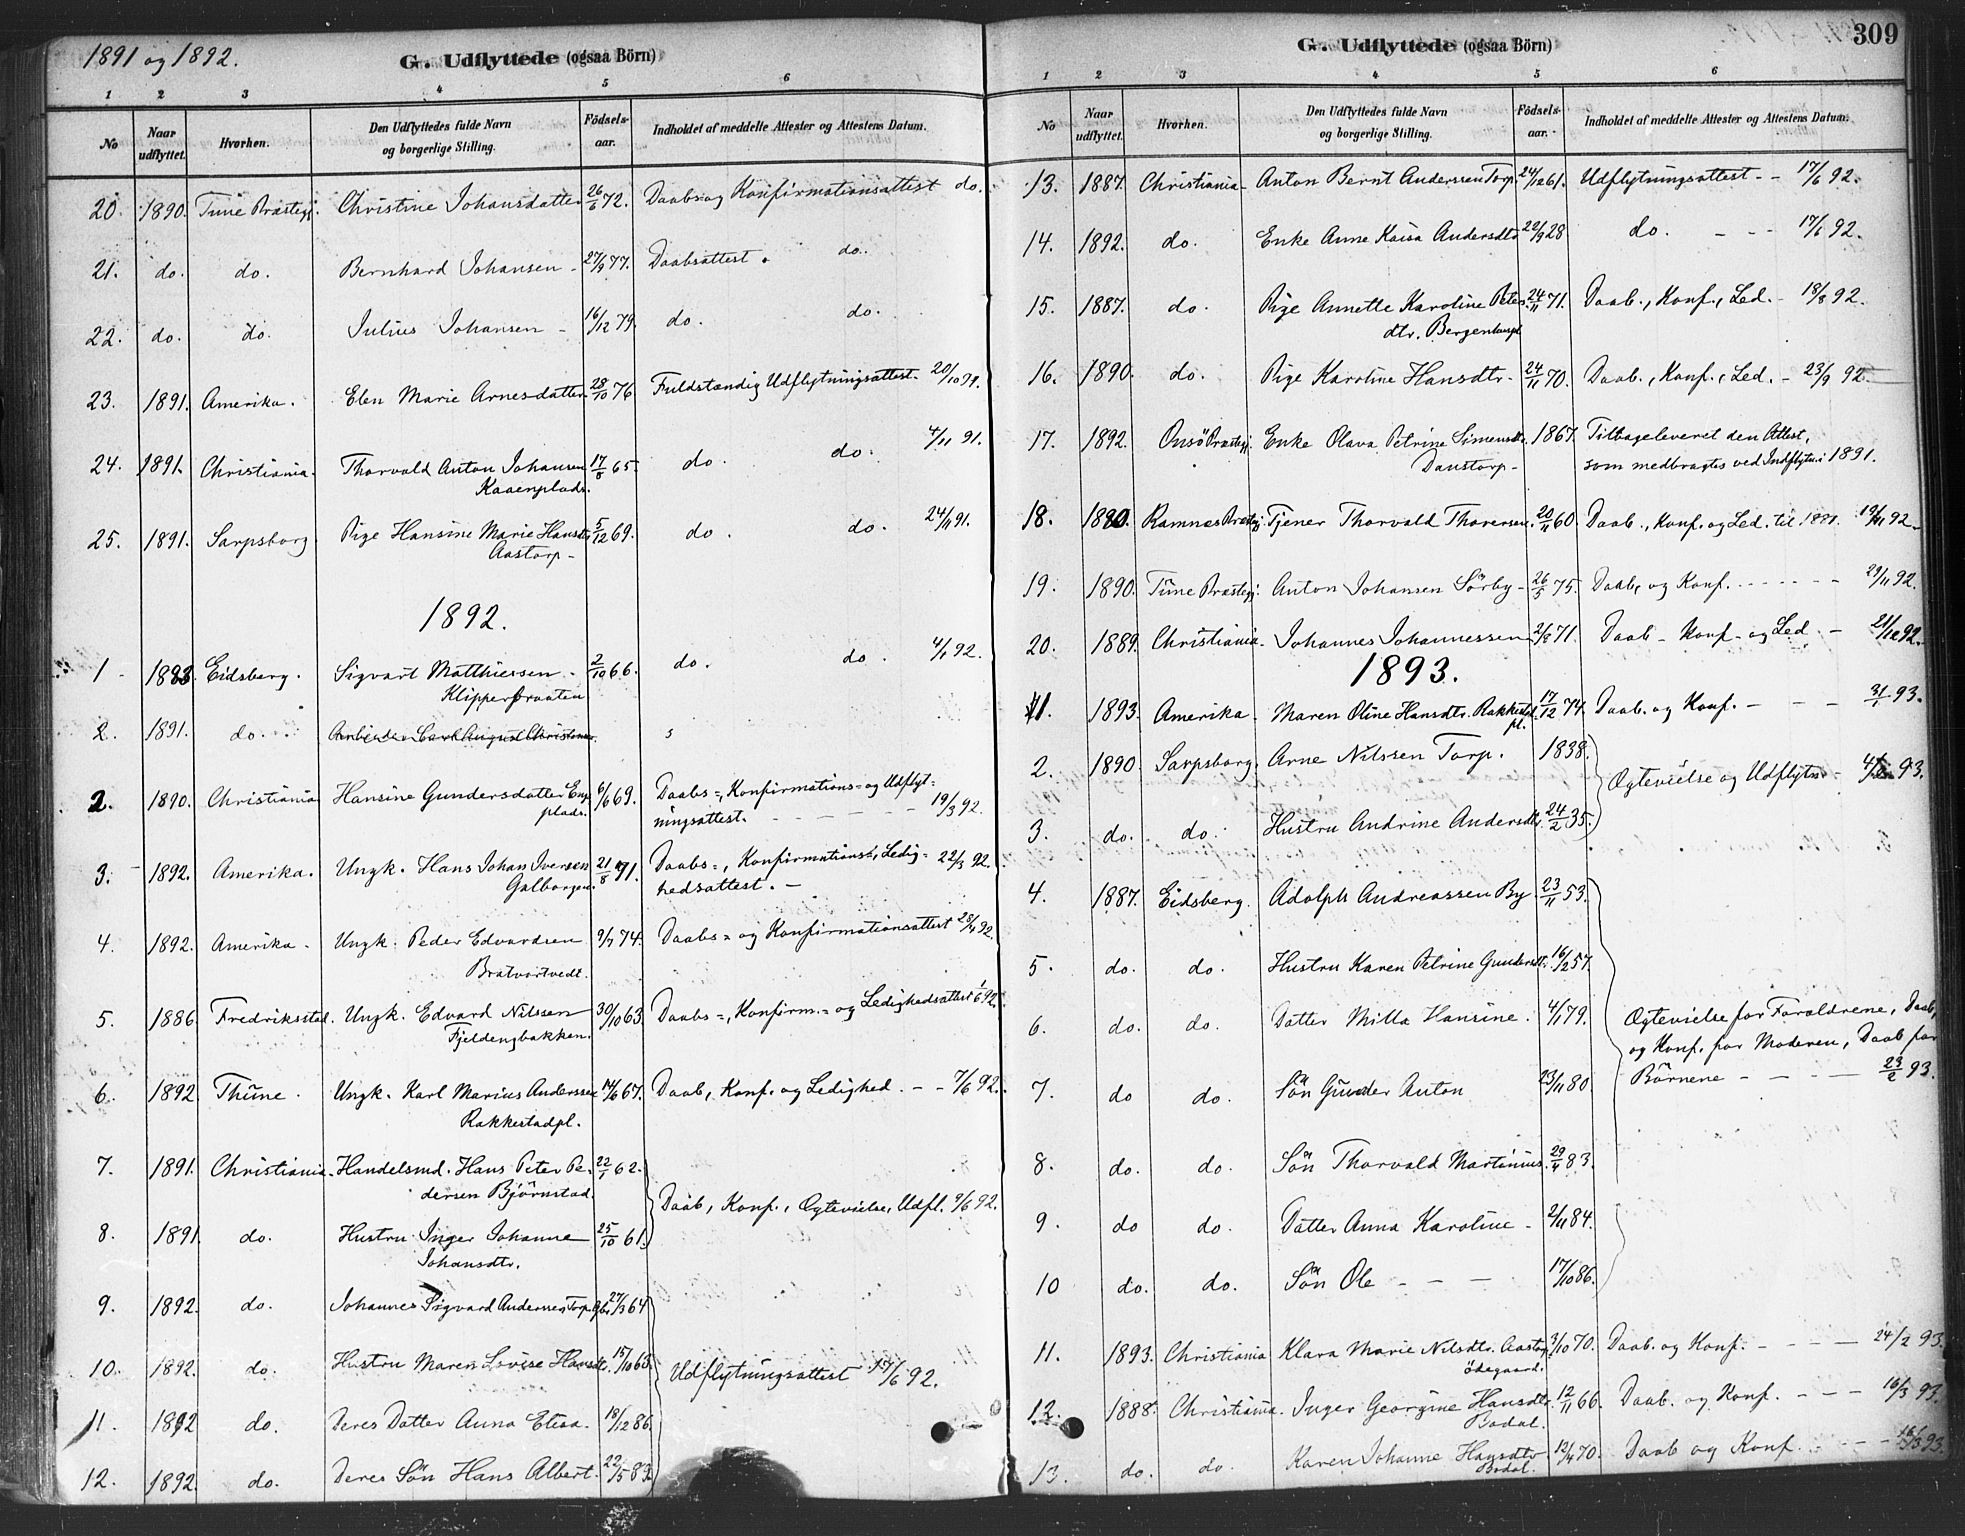 1891 og 1892.
G. Udflyttede (ogsaa Börn)
1 2 3 4 5 6
No Naar udflyttet. Hvorhen. Den Udflyttedes fulde Navn og borgerlige Stilling. Födsels-aar. Indholdet af meddelte Attester og Attestens Datum.
20. 1890. Tune Præstegj. Christine Johansdatter 26/6 72. Daabs og Konfirmationsattest do.
21. do. do. Bernhard Johansen - 27/9 77. Daabsattest. do.
22. do. do. Julius Johansen - 16/12 79. do. do.
23. 1891. Amerika. Elen Marie Arnesdatter 28/10 76 Fuldstændig Udflytningsattest. 20/10 91.
24. 1891. Christiania. Thorvald Anton Johansen 17/8 65. do. do. 4/11 91.
Kaaenplads.
25. 1891. Sarpsborg Pige Hansine Marie Hansdtr 5/12 69. do. do. 24/11 91.
Aastorp -
1892.
1 - Eidsberg. Sigvart Matthiesen - 2/10 66. do. do. 4/1 92.
Klipperfraaten
2. 1891. do. Arbeider Carl August Christensen
2. 1890. Christiania Hansine Gundersdatter Eng 6/6 69. Daabs=, Konfirmations= og Udflyt=
plads. ningsattest. - - - - 19/3 92.
3. 1892. Amerika. Ungk. Hans Johan Iversen 21/8 71. Daabs=, Konfirmations=, Ledig= 22/3 92.
Galborgen. hedsattest. -
4. 1892. Amerika - Ungk. Peder Edvardsen 9/7 74. Daabs= og Konfirmationsattest 28/4 92.
Bratvartvedt.
5. 1886 Fredriksstad. Ungk. Edvard Nilssen 30/10 63. Daabs=, Konfirm.= og Ledighedsattest 1/6 92.
Fjeldengbakken.
6. 1892. Thune. Ungk. Karl Marius Anderssen 14/6 67. Daab, Konf. og Ledighed. - - 7/6 92.
Rakkestadpl.
7. 1891. Christiania. Handelsmd. Hans Peter Pe- 22/1 62.
dersen Bjørnstad. Daab, Konf., Ogtevielse, Udfl. 9/6 92.
8. 1891. do. Hustru Inger Johanne 25/10 61.
Johansdtr.
9. 1892. do. Johannes Sigvard Andersen Torp 27/3 64
10. 1892. do. Hustru Maren Lovise Hansdt. 15/10 65. Udflytningsattest 17/6 92.
11. 1892 do. Deres Datter Anna Elisa. 18/12 86.
12. 1892. do. Deres Sön Hans Albert. 22/5 83.
309
G. Udflyttede (ogsaa Börn)
1 2 3 4 5 6
No Naar udflyttet. Hvorhen. Den Udflyttedes fulde Navn og borgerlige Stilling. Födsels-aar. Indholdet af meddelte Attester og Attestens Datum.
13. 1887. Christiania - Anton Bernt Anderssen Torp. 24/12 61. Udflytningsattest - - 17/6 92.
14. 1892. do. Enke Anne Kaisa Andersdtr 22/9 28 do. - - - 17/6 92.
15. 1887. do. Pige Annette Karoline Peters 24/11 71. Daab., Konf., Led. - 18/8 92.
dtr. Bergenhaugst
16. 1890. do. Pige Karoline Hansdtr - 24/11 70. Daab., Konf., Led. - 23/9 92.
17. 1892. Onsö Præstegj. Enke Olava Petrine Simensdtr. 1867. Tilbageleveret den Attest,
Danstorp - som medbragtes ved Indflytn. i 1891.
18. 1890. Ramnes Præstegj. Tjener Thorvald Thoresen. 20/11 60. Daab., Konf. og Led. til 1881. 19/11 92.
19. 1890. Tüne Præstegj. Anton Johansen Sörby - 26/5 75. Daab, og Konf. - - - - 29/11 92.
20. 1889. Christiania. Johannes Johannessen 2/8 71. Daab - Konf - og Led. - 21/12 92.
1893.
1. 1893. Amerika. Maren Oline Hansdtr. Rakkestad 17/12 74. Daab. og Konf. - - - 31/1 93.
pl.
2. 1890. Sarpsborg. Arne Nilssen Torp. 1838.
Ogtevielse og Udflytn. 93.
3. do. do. Hustru Andrine Andersdtr. 24/2 35.
4. 1887. Eidsberg. Adolph Andreassen By. 23/11 53.
5. do. do. Hustru Karen Petrine Gundersdtr. 16/2 57.
6. do. do. Datter Milla Hansine. 4/1 79. Ogtevielse for Forældrene, Daab,
og Konf. for Moderen, Daab for
7. do do. Sön Gunder Anton 23/11 80 Börnene - - - - 23/2 93.
8. do. do. Sön Thorvald Martinius. 29/4 83.
9. do do. Datter Anna Karoline - 2/11 84.
10 do. do. Sön Ole - - - 17/10 86.
11. 1893. Christiania Klara Marie Nilsdtr. Aastorp 3/10 70. Daab. og Konf. - - - - 24/2 93.
ödegaard.
12. 1888. Christiania. Inger Georgine Hansdtr 12/11 66. Daab. og Konf. - - - 16/3 93.
Bodal.
13. do. do. Karen Johanne Hansdtr 12/4 70. Daab og Konf. - - - 16/3 93.
Bodal.